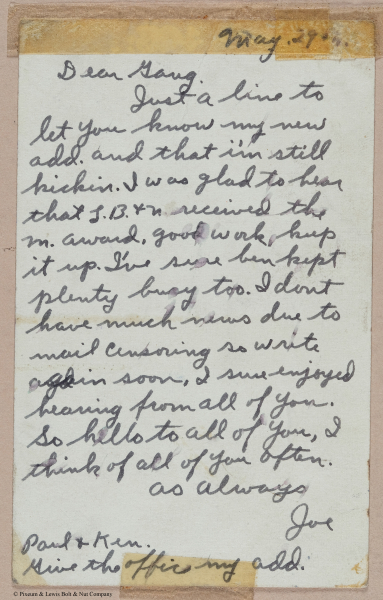 May. 29th.
Dear Gang.
Just a line to
let you know my new
add. and that i'm still
kickin. I was glad to hear
that L.B. & N. received the
M. award, good work, keep
it up. I've sure ben kept
plenty busy too. I dont
have much news due to
mail censoring so write
again soon, I sure enjoyed
hearing from all of you.
So hello to all of you, I
think of all of you often.
as always
Joe
Paul & Ken.
Give the office my add.
© Pruzum & Lewis Bolt & Nut Company